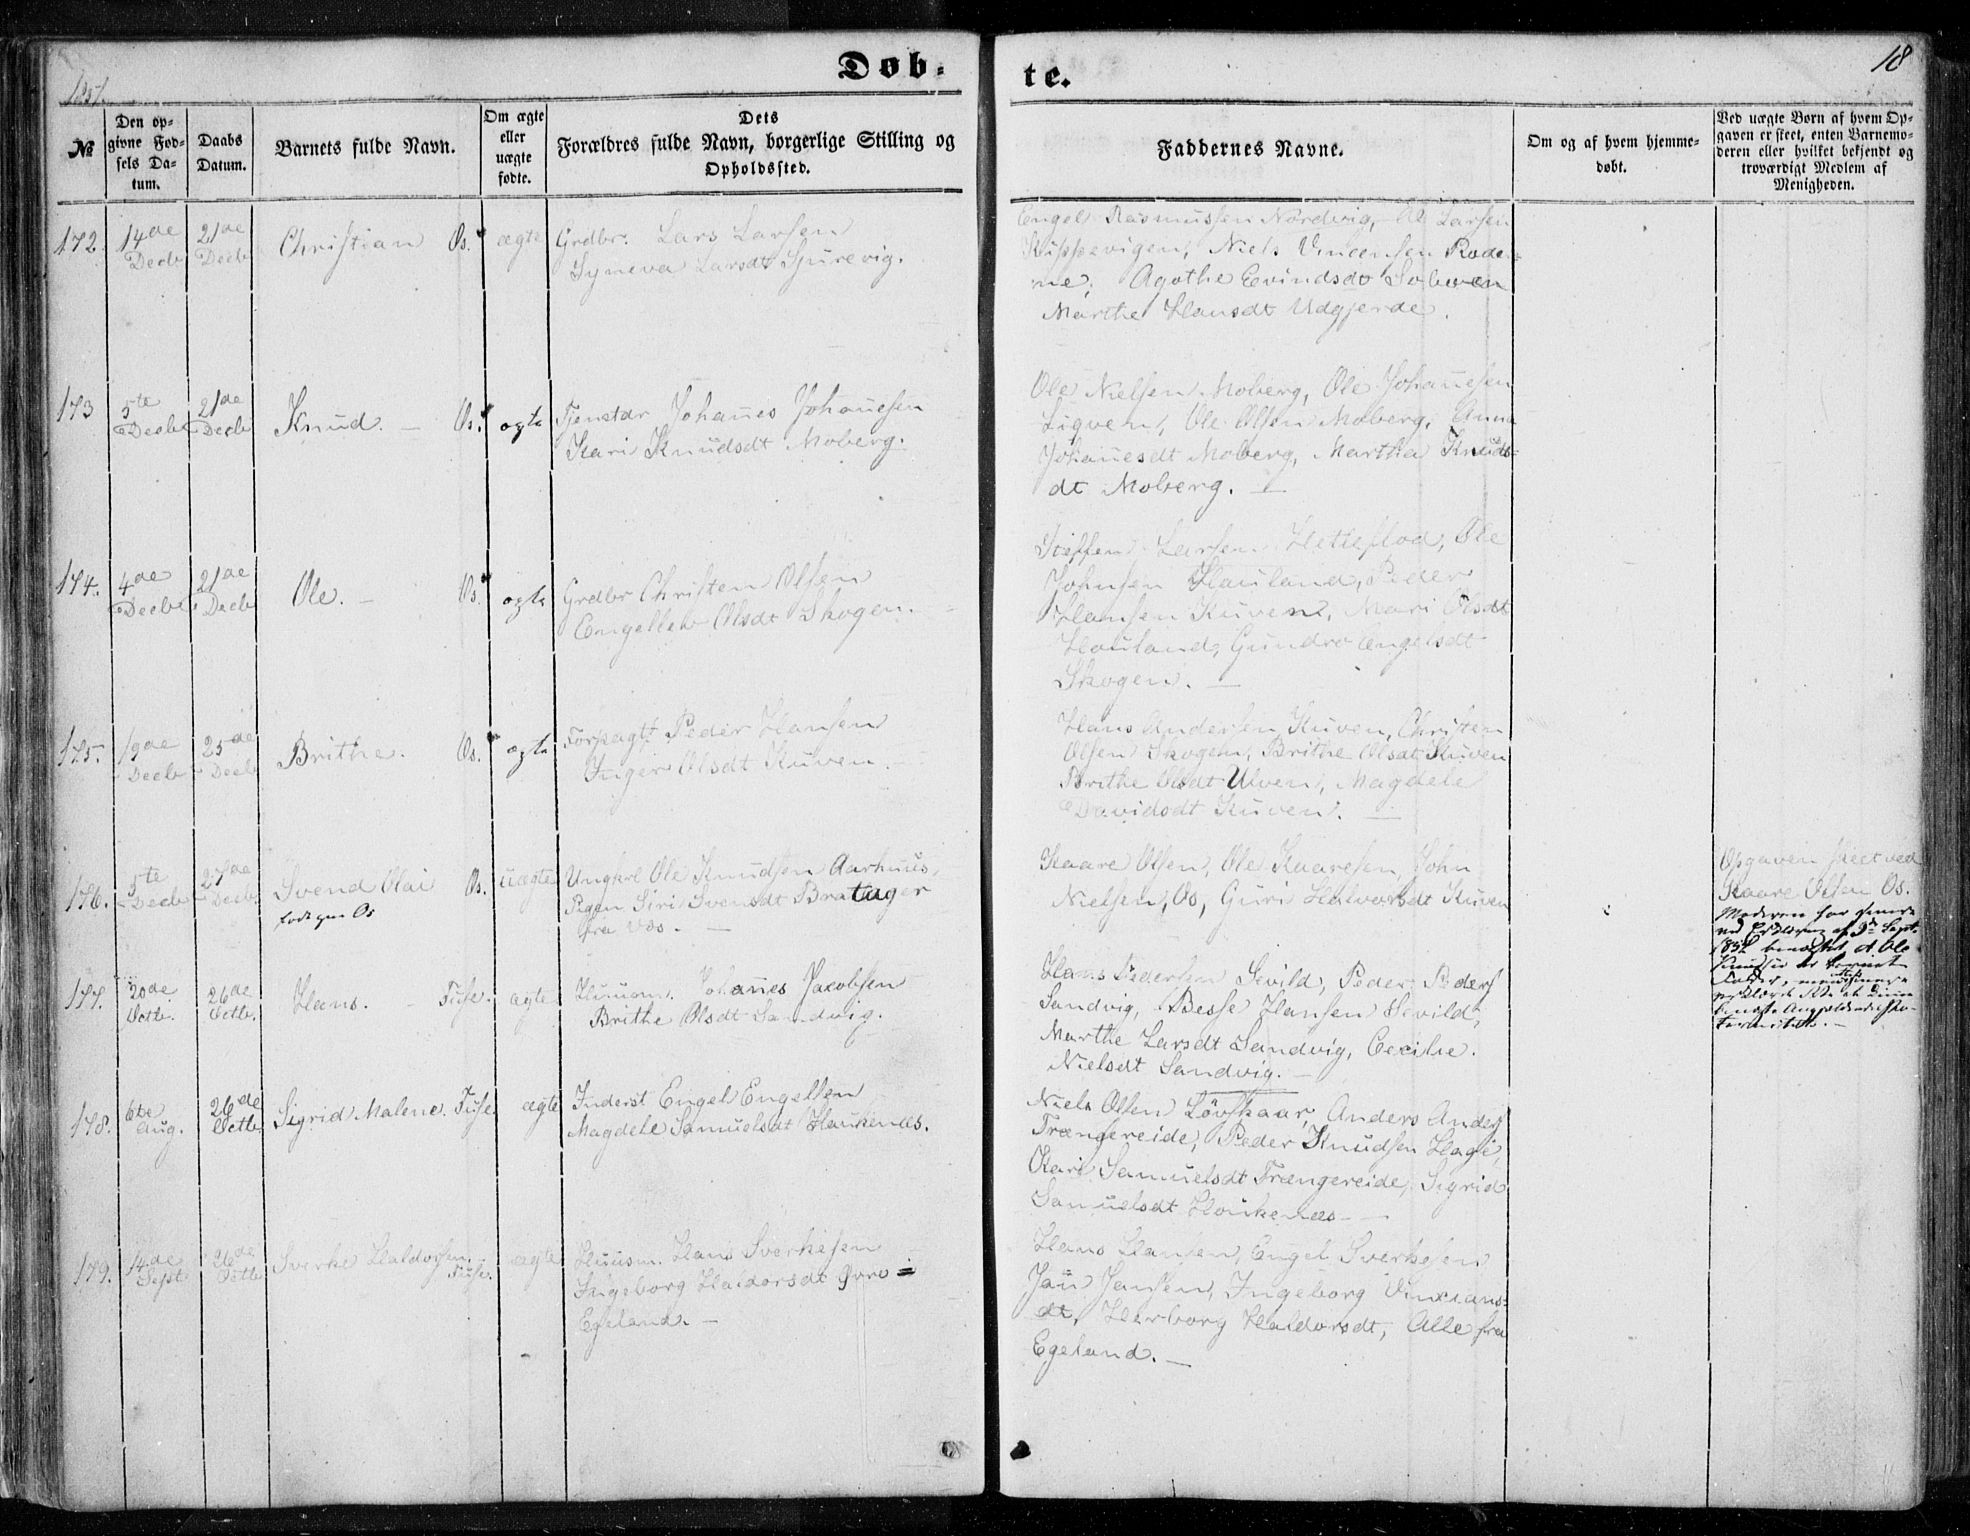 1851.
Døb-
te.
18
№
Den op-
givne Fød-
sels Da-
tum.
Daabs
Datum.
Barnets fulde Navn.
Om ægte
eller
uægte
fødte.
Dets
Forældres fulde Navn, borgerlige Stilling og
Opholdssted.
Faddernes Navne.
Om og af hvem hjemme-
døbt.
Ved uægte Børn af hvem Op-
gaven er skeet, enten Barnemo-
deren eller hvilket bekjendt og
troværdigt Medlem af
Menigheden.
172.
14de
Decbr
21de
Decbr
Christian Os.
ægte
Grdbr. Lars Larsen
Syneva Larsdt Sjurevig.
Engel Rasmussen Nordvig, Ole Larsen
Kuppevigen, Niels Vincensen Rode-
ne, Agothe Evindsdt
Marthe Hansdt Udgjerde.
173
5te
Decbr
21de
Decbr
Knud. – Os.
ægte
Tjenstdr Johanes Johanesen
Kari Knudsdt Moberg.
Ole Nielsen Moberg, Ole Johanesen
Ligven, Ole Olsen Moberg, Anna
Johanesdt Moberg, Martha Knuds-
dt Moberg. –
174.
4de
Decbr
21de
Decbr
Ole. – Os.
ægte
Grdbr Christen Olsen
Engelleb Olsdt Skogen.
Steffen Larsen Hetleflod, Ole
Johnsen Hauland, Peder
Hansen Kuven, Mari Olsdt
Hauland, Gundro Engelsdt
Skogen. –
175.
19de
Decbr
25de
Decbr
Brithe. Os.
ægte
Forpagt Peder Hansen
Inger Olsdt Kuven. –
Hans Andersen Kuven, Christen
Olsen Skogen, Brithe Olsdt Kuven
Brithe Olsdt Ulven, Magdele
Davidsdt Kuven. –
176.
5te
Decbr
27de
Decbr
Svend Olai Os.
født paa Os
uægte
Ungkrl Ole Knudsen Aarhuus,
Pigen Siri Svensdt Bratager
fra Vos. –
Kaare Olsen, Ole Kaaresen, John
Nielsen, Os, Guri Halvorsdt Kuven
Opgaven skeet ved
Kaare Olsen Os.
Moderen har senere
ved Erklæring af 9de Sept.
1852 benægtet, at Ole
Knudsen er Barnets
Fader, men senere
177.
20de
Octb.
26de
Octb.
Hans. – Fuse.
ægte
Huusm. Johanes Jacobsen
Brithe Olsdt Sandvig.
Hans Pedersen Sevild, Peder Peders
Sandvig, Besse Hansen Sevild,
Marthe Larsdt Sandvig, Cecilie
Nielsdt Sandvig. –
178.
6te
Aug.
26de
Octb.
Sigrid Malene. Fuse.
ægte
Inderst Engel Engelsen
Magdele Samuelsdt Haukenæs.
Niels Olsen Lövskaar, Anders Anders
Trængereide, Peder Knudsen Hage,
Kari Samuelsdt Trængereide, Sigrid
Samuelsdt Houkenæs –
179.
14de
Sept
26de
Octb
Sverke Haldorsen.
Fuse.
ægte
Huusm. Hans Sverkesen
Ingeborg Haldorsdt Øvre=
Egeland. –
Hans Hansen, Engel Sverkesen
Jan Jansen, Ingeborg Vincians-
dt, Herborg Haldorsdt, Alle fra
Egeland. –